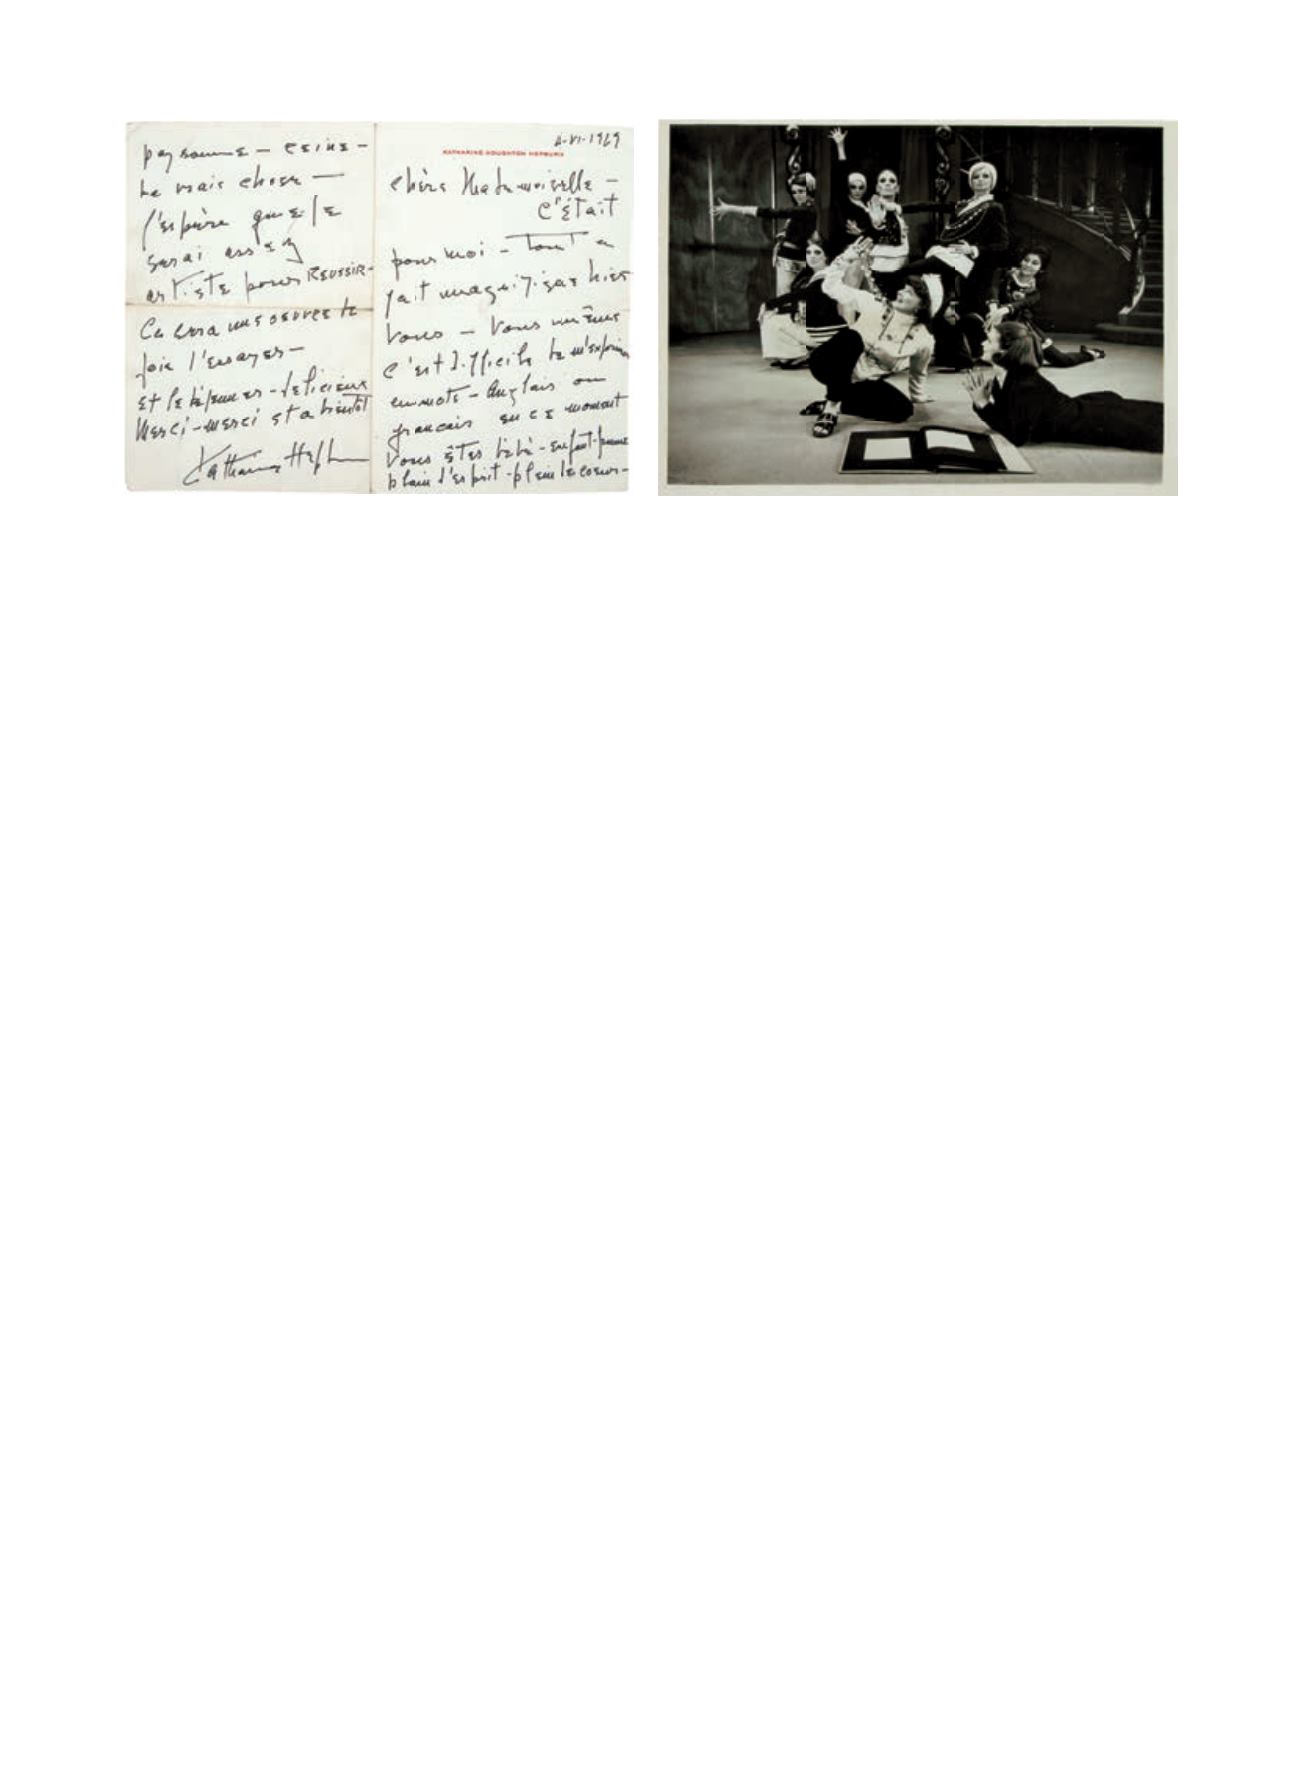 4-VI-1969
KATHARINE HOUGHTON HEPBURN
chère Mademoiselle –
C'était
pour moi – Tout a
fait magnifique hier
Vous – Vous même
C'est difficile de m'exprimer
en mots – Anglais ou
francais en ce moment
Vous êtes bébé - enfant - femme
plein d'esprit - plein de coeur –
paysanne – reine –
La vraie chose –
J'espère que je
serai assez
artiste pour REUSSIR –
Ca sera une oeuvre de
joie l'essayer –
Et le déjeuner – delicieux
Merci – merci et a bientôt
Katharine Hepburn